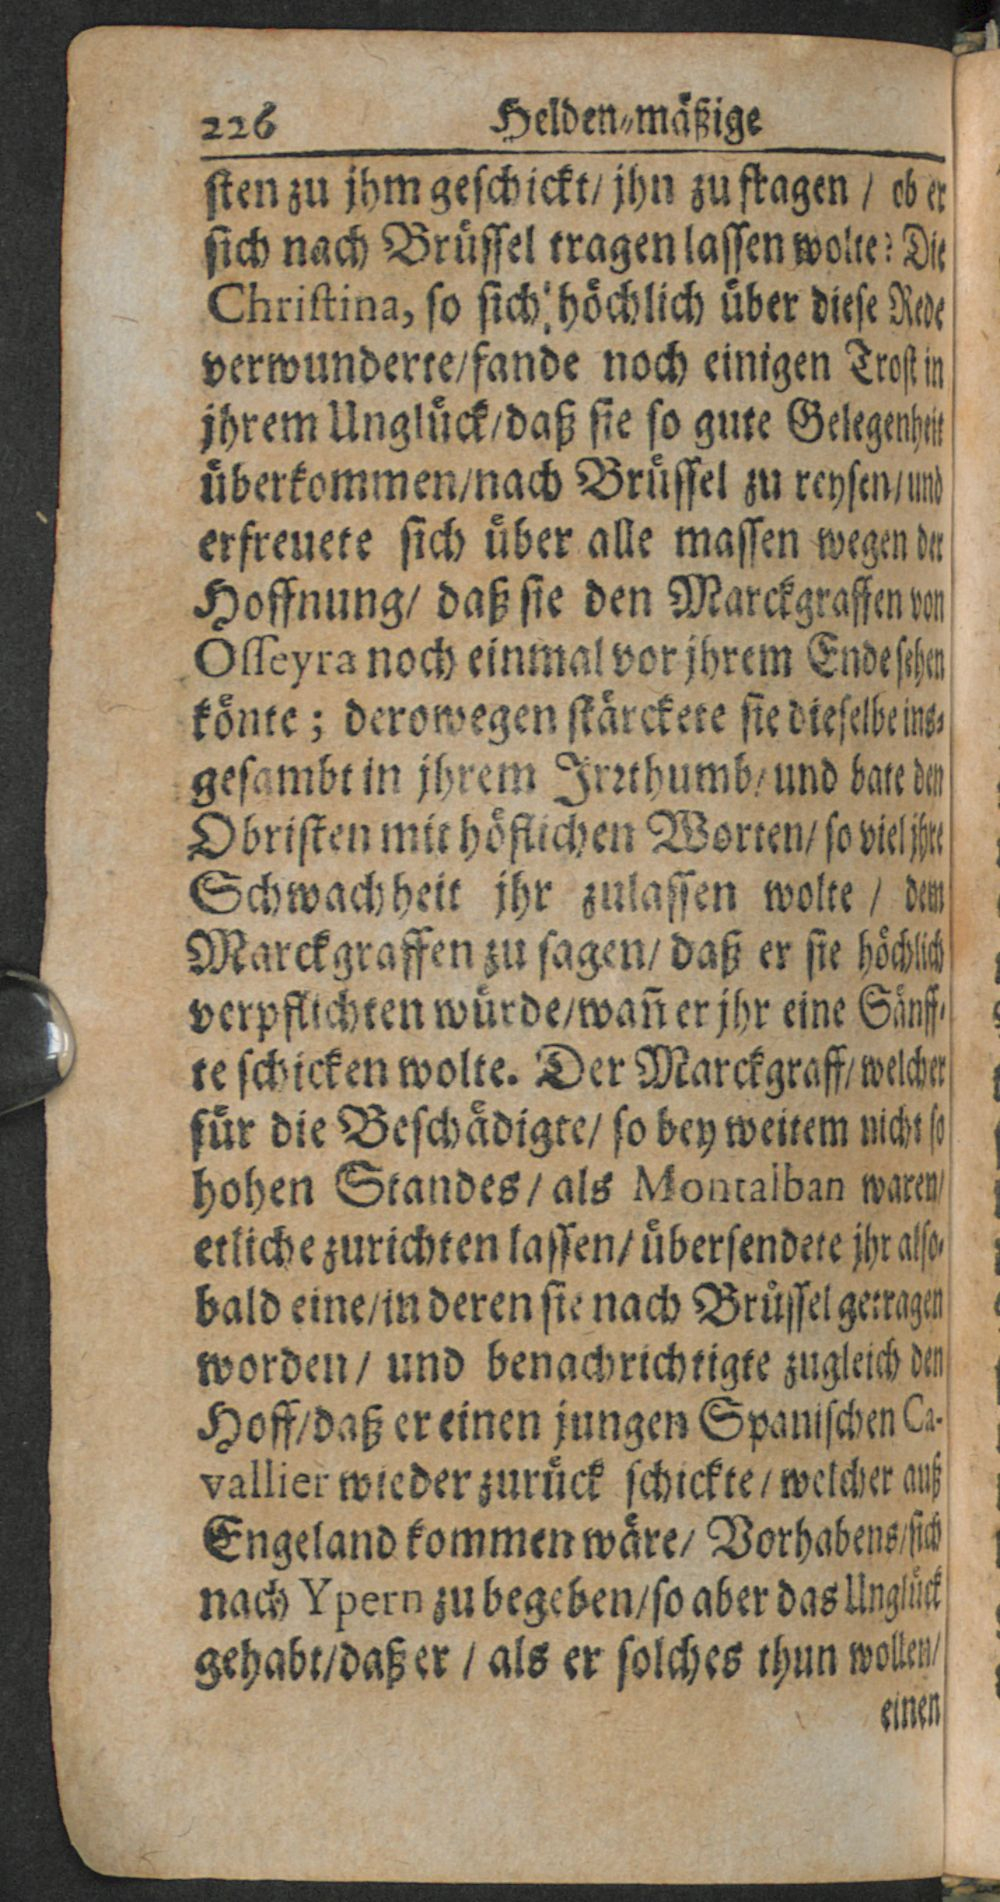 226 Helden-mäßige
sten zu jhm geschickt/ jhn zu fragen / ob er
sich nach Brüssel tragen lassen wolte? Die
Christina, so sich höchlich über diese Rede
verwunderte/ fande noch einigen Trost in
jhrem Unglück/ daß sie so gute Gelegenheit
überkommen/ nach Brüssel zu reysen/ und
erfreuete sich über alle massen wegen der
Hoffnung/ daß sie den Marckgraffen von
Osseyra noch einmal vor jhrem Ende sehen
könte; derowegen stärckete sie dieselbe ins-
gesambt in jhrem Irrthumb/ und bate den
Obristen mit höflichen Worten/ so viel jhre
Schwachheit jhr zulassen wolte / dem
Marckgraffen zu sagen/ daß er sie höchlich
verpflichten würde/ wañ er jhr eine Sänff-
te schicken wolte. Der Marckgraff/ welcher
für die Beschädigte/ so bey weitem nicht so
hohen Standes/ als Montalban waren/
etliche zurichten lassen/ übersendete jhr also-
bald eine/ in deren sie nach Brüssel getragen
worden/ und benachrichtigte zugleich den
Hoff/ daß er einen jungen Spanischen Ca-
vallier wieder zurück schickte/ welcher auß
Engeland kommen wäre/ Vorhabens/ sich
nach Ypern zu begeben/ so aber das Unglück
gehabt/ daß er / als er solches thun wollen/
einen